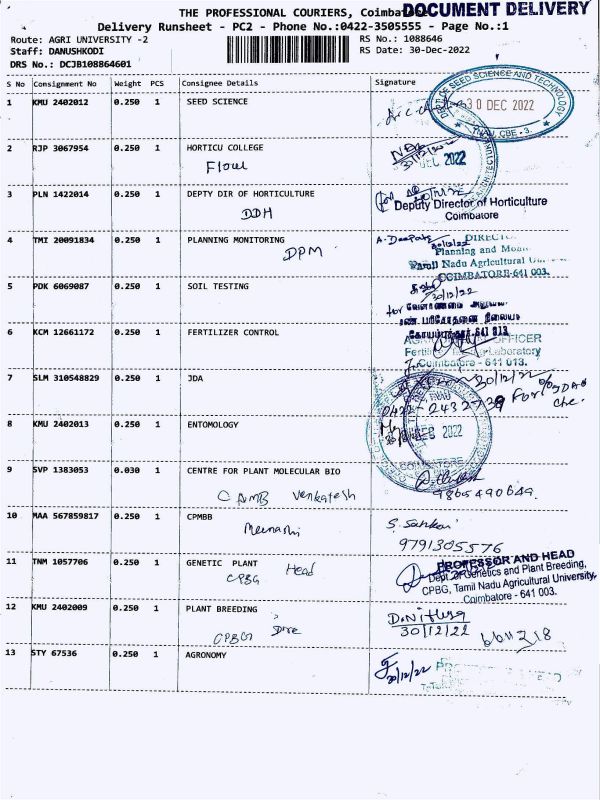 THE PROFESSIONAL COURIERS, Coimbatore
DOCUMENT DELIVERY
Delivery Runsheet - PC2 - Phone No.:0422-3505555 - Page No.:1
Route: AGRI UNIVERSITY -2
RS No.: 1088646
Staff: DANUSHKODI
RS Date: 30-Dec-2022
DRS No.: DCJB108864601
S No Consignment No Weight PCS Consignee Details Signature
1 KMU 2402012 0.250 1 SEED SCIENCE
DEPT OF SEED SCIENCE AND TECHNOLOGY
30 DEC 2022
TNAU, CBE - 3.
2 RJP 3067954 0.250 1 HORTICU COLLEGE
30/12/2022
DEC 2022
3 PLN 1422014 0.250 1 DEPTY DIR OF HORTICULTURE
DDH
for
Deputy Director of Horticulture
Coimbatore
4 TMI 20091834 0.250 1 PLANNING MONITORING
DPM
30/12/22
Planning and
Tamil Nadu Agricultural
COIMBATORE-641 003.
5 PDK 6069087 0.250 1 SOIL TESTING
30/12/22
for
6 KCM 12661172 0.250 1 FERTILIZER CONTROL
641 013
OFFICER
Laboratory
Coimbatore - 641 013.
7 SLM 310548829 0.250 1 JDA
30/12/22
0422-2432739 For
8 KMU 2402013 0.250 1 ENTOMOLOGY
DEC 2022
COIMBATORE
9 SVP 1383053 0.030 1 CENTRE FOR PLANT MOLECULAR BIO
CPMB Venkatesh
9865490649.
10 MAA 567859817 0.250 1 CPMBB
S. Sankar
9791305576
11 TNM 1057706 0.250 1 GENETIC PLANT
CPBG Head
PROFESSOR AND HEAD
Dept. Of Genetics and Plant Breeding,
CPBG, Tamil Nadu Agricultural University,
Coimbatore - 641 003.
12 KMU 2402009 0.250 1 PLANT BREEDING
CPBG
30/12/22
6611318
13 STY 67536 0.250 1 AGRONOMY
30/12/22